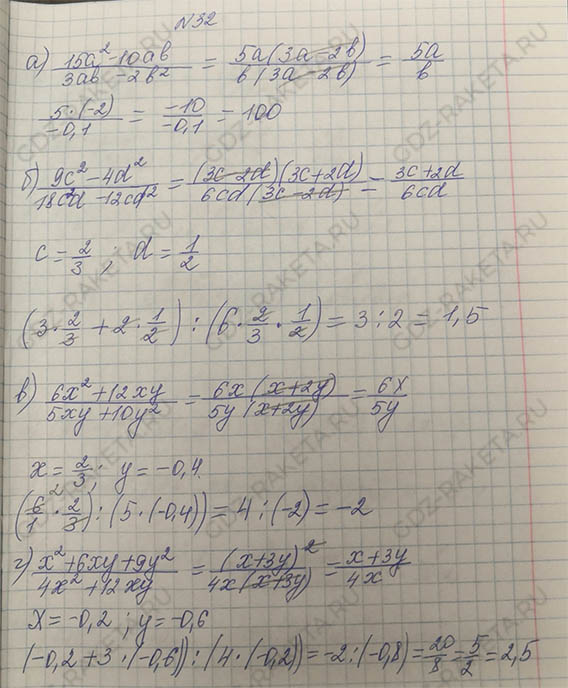 №32
а) (15a² - 10ab)/(3ab - 2b²) = (5a(3a - 2b))/(b(3a - 2b)) = 5a/b
(5·(-2))/(-0,1) = (-10)/(-0,1) = 100
б) (9c² - 4d²)/(18c²d - 12cd²) = ((3c - 2d)(3c + 2d))/(6cd(3c - 2d)) = (3c + 2d)/(6cd)
c = 2/3 ; d = 1/2
(3·2/3 + 2·1/2) : (6·2/3·1/2) = 3 : 2 = 1,5
в) (6x² + 12xy)/(5xy + 10y²) = (6x(x + 2y))/(5y(x + 2y)) = 6x/5y
x = 2/3 ; y = -0,4
(6/1 · 2/3) : (5·(-0,4)) = 4 : (-2) = -2
г) (x² + 6xy + 9y²)/(4x² + 12xy) = (x + 3y)²/(4x(x + 3y)) = (x + 3y)/(4x)
x = -0,2 ; y = -0,6
(-0,2 + 3·(-0,6)) : (4·(-0,2)) = -2 : (-0,8) = 20/8 = 5/2 = 2,5
GDZ-RAKETA.RU